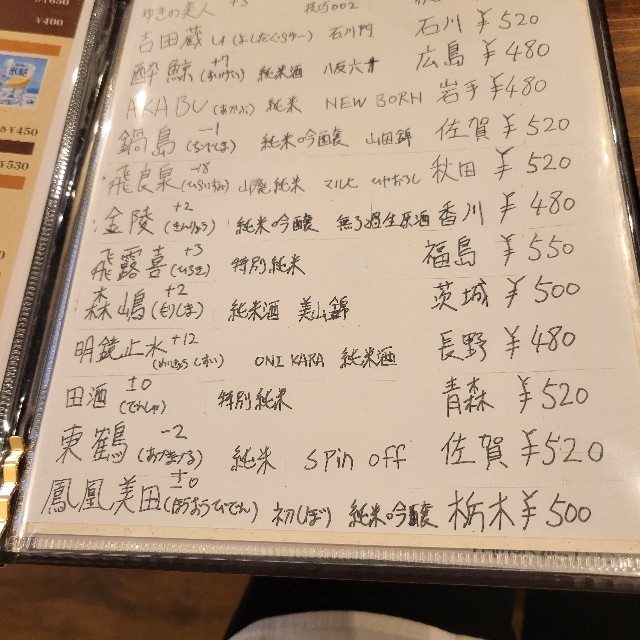 ¥650
¥400
¥450
¥530
ゆきの美人 +3
吉田蔵u (よしだくらゆー) 石川門 石川 ¥520
酔鯨 +7 (すいげい) 純米酒 八反六廿 広島 ¥480
AKABU (あかぶ) 純米 NEW BORN 岩手 ¥480
鍋島 -1 (なべしま) 純米吟醸 山田錦 佐賀 ¥520
飛良泉 -18 (ひらいずみ) 山廃純米 マル飛 ひやおろし 秋田 ¥520
金陵 +2 (きんりょう) 純米吟醸 無ろ過生原酒 香川 ¥480
飛露喜 +3 (ひろき) 特別純米 福島 ¥550
森嶋 +2 (もりしま) 純米酒 美山錦 茨城 ¥500
明鏡止水 +12 (めいきょうしすい) ONI KARA 純米酒 長野 ¥480
田酒 ±0 (でんしゅ) 特別純米 青森 ¥520
東鶴 -2 (あづまつる) 純米 Spin off 佐賀 ¥520
鳳凰美田 ±0 (ほうおうびでん) 初しぼり 純米吟醸 栃木 ¥500